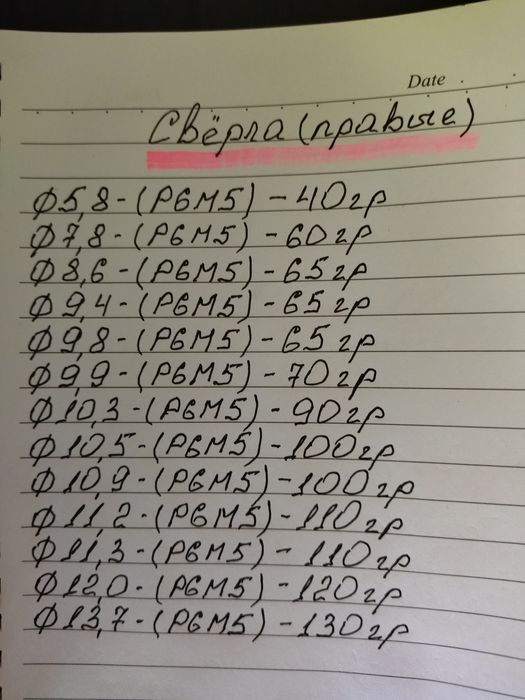 Date
Свёрла (правые)
Ф5,8-(Р6М5)-40гр
Ф7,8-(Р6М5)-60гр
Ф8,6-(Р6М5)-65гр
Ф9,4-(Р6М5)-65гр
Ф9,8-(Р6М5)-65гр
Ф9,9-(Р6М5)-70гр
Ф10,3-(Р6М5)-90гр
Ф10,5-(Р6М5)-100гр
Ф10,9-(Р6М5)-100гр
Ф11,2-(Р6М5)-110гр
Ф11,3-(Р6М5)-110гр
Ф12,0-(Р6М5)-120гр
Ф13,7-(Р6М5)-130гр